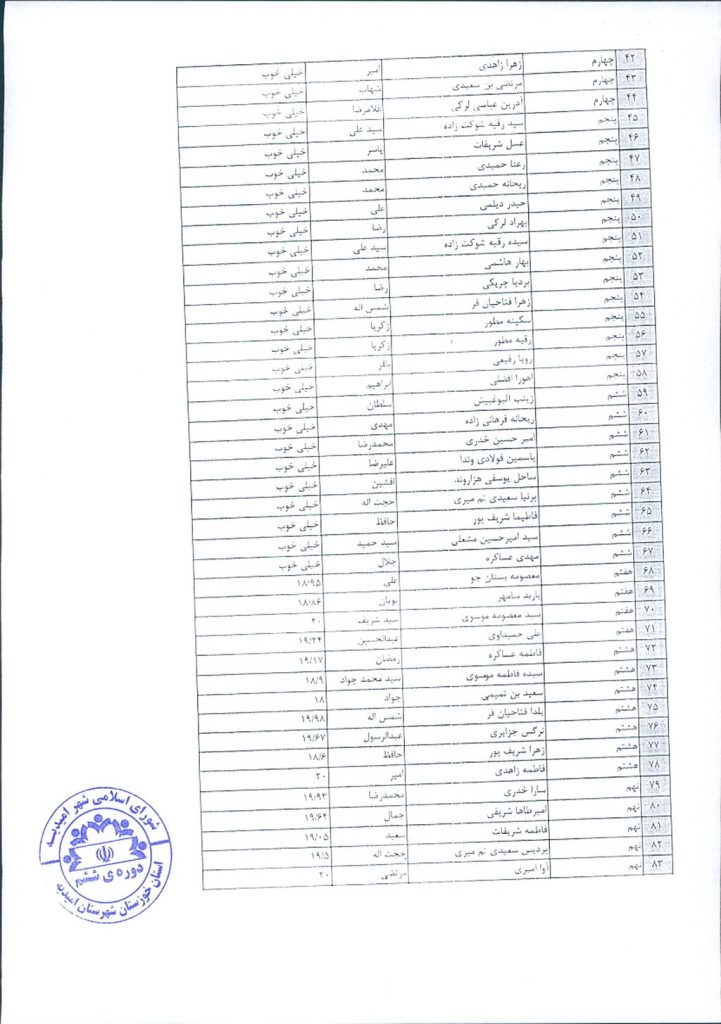 ۴۲ چهارم زهرا زاهدی امیر خیلی خوب
۴۳ چهارم مرتضی بن سعیدی شهاب خیلی خوب
۴۴ چهارم آدرین عباسی لرکی غلامرضا خیلی خوب
۴۵ پنجم سید رقیه شوکت زاده سید علی خیلی خوب
۴۶ پنجم عسل شریفات یاسر خیلی خوب
۴۷ پنجم رعنا حمیدی محمد خیلی خوب
۴۸ پنجم ریحانه حمیدی محمد خیلی خوب
۴۹ پنجم حیدر دیلمی علی خیلی خوب
۵۰ پنجم بهراد لرکی رضا خیلی خوب
۵۱ پنجم سیده رقیه شوکت زاده سید علی خیلی خوب
۵۲ پنجم بهار هاشمی محمد خیلی خوب
۵۳ پنجم بردیا چریکی رضا خیلی خوب
۵۴ پنجم زهرا فتاحیان فر شمس اله خیلی خوب
۵۵ پنجم سکینه مطور زکریا خیلی خوب
۵۶ پنجم رقیه مطور زکریا خیلی خوب
۵۷ پنجم رویا رفیعی باقر خیلی خوب
۵۸ پنجم اهورا افضلی ابراهیم خیلی خوب
۵۹ ششم زینب البوغبیش سلطان خیلی خوب
۶۰ ششم ریحانه فرهانی زاده مهدی خیلی خوب
۶۱ ششم امیر حسین خدری محمدرضا خیلی خوب
۶۲ ششم یاسمین فولادی وندا علیرضا خیلی خوب
۶۳ ششم ساحل یوسفی هزاروند افشین خیلی خوب
۶۴ ششم برنیا سعیدی نم میری حجت اله خیلی خوب
۶۵ ششم فاطیما شریف پور حافظ خیلی خوب
۶۶ ششم سید امیرحسین مشعلی سید حمید خیلی خوب
۶۷ ششم مهدی عساکره جلال خیلی خوب
۶۸ هفتم معصومه بستان جو علی ۱۸/۹۵
۶۹ هفتم باربد سامهر پویان ۱۸/۸۶
۷۰ هفتم سید معصومه موسوی سید شریف ۲۰
۷۱ هفتم علی حمیداوی عبدالحسین ۱۹/۲۴
۷۲ هشتم فاطمه عساکره رمضان ۱۹/۱۷
۷۳ هشتم سیده فاطمه موسوی سید محمد جواد ۱۸/۹
۷۴ هشتم سعید بن تمیمی جواد ۱۸
۷۵ هشتم یلدا فتاحیان فر شمس اله ۱۹/۹۸
۷۶ هشتم نرگس جزایری عبدالرسول ۱۹/۶۷
۷۷ هشتم زهرا شریف پور حافظ ۱۸/۶
۷۸ هشتم فاطمه زاهدی امیر ۲۰
۷۹ نهم سارا خدری محمدرضا ۱۹/۹۳
۸۰ نهم امیرطاها شریفی جمال ۱۹/۶۴
۸۱ نهم فاطمه شریفات سعید ۱۹/۰۵
۸۲ نهم پردیس سعیدی نم میری حجت اله ۱۹/۵
۸۳ نهم آوا امیری مرتضی ۲۰
شورای اسلامی شهر امیدیه
دوره ی ششم
استان خوزستان شهرستان امیدیه